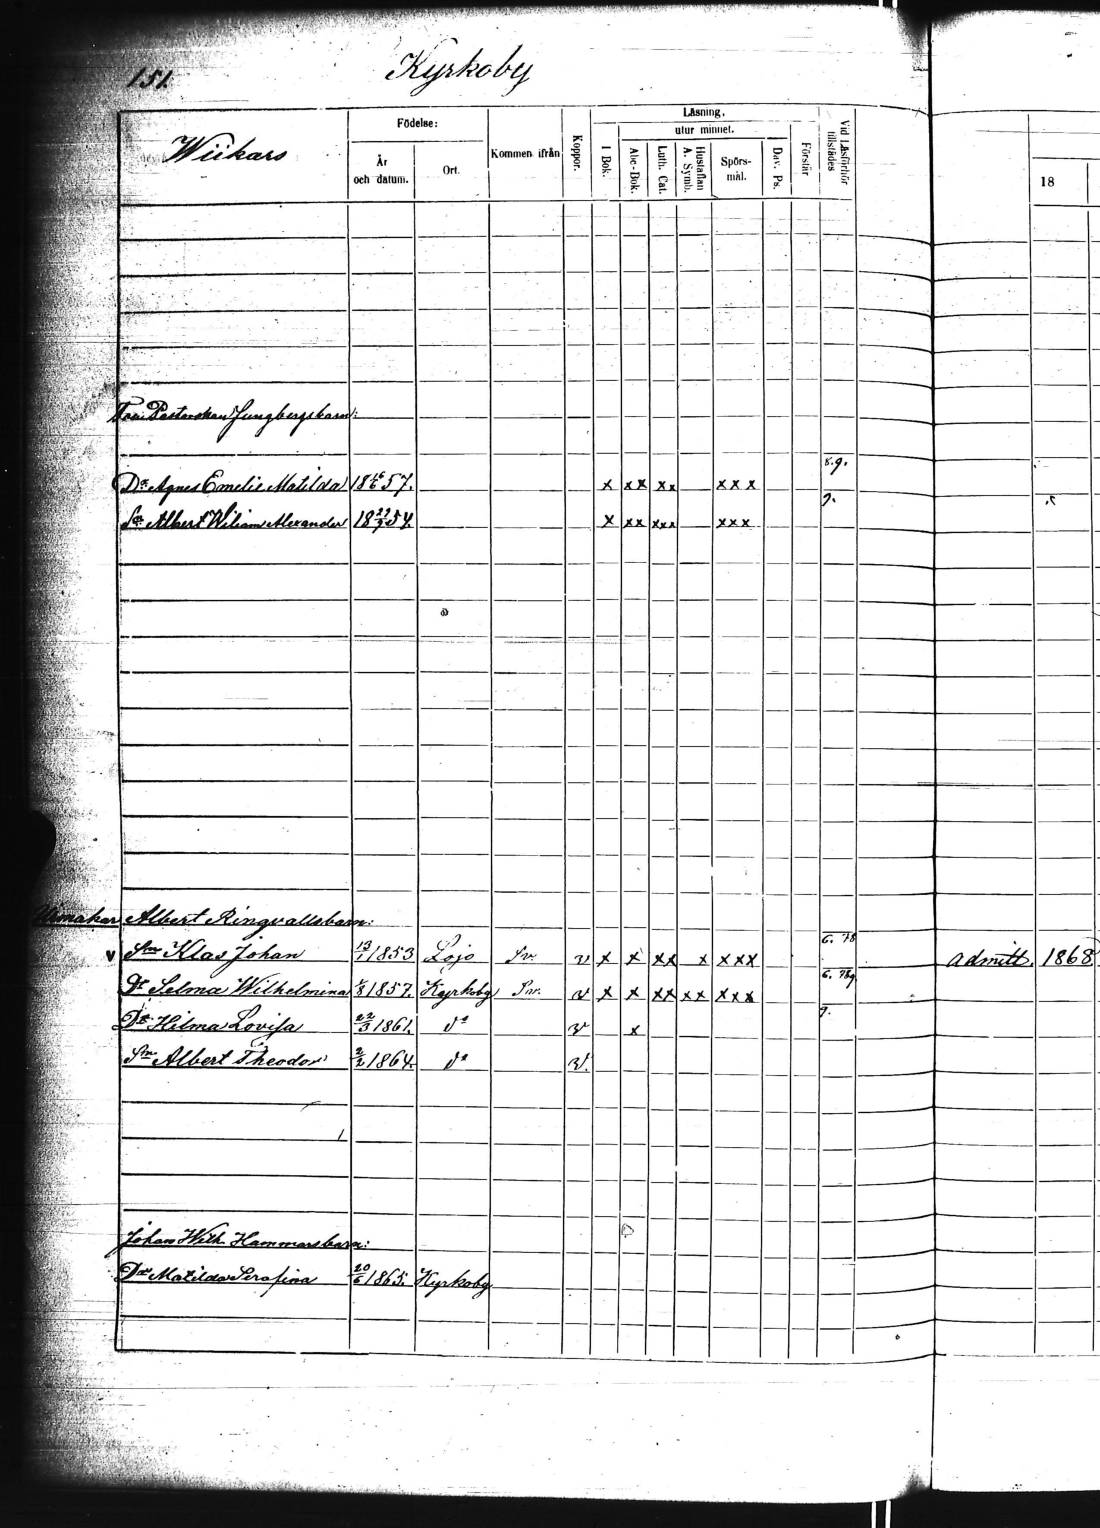 151.
Kyrkoby
Wiikars
Födelse:
År och datum.
Ort.
Kommen ifrån
Koppor.
Läsning,
utur minnet.
I Bok.
Abc-Bok.
Luth. Cat.
Hustaflan A. Symb.
Spörsmål.
Dav. Ps.
Förstår
Vid Läsförhör tillstädes
18
Pastorskan Ljungbergsbarn:
8.9.
Dr Agnes Emelie Matilda 18 57. x xx xx xxx
9.
Sn Albert Wiliam Alexander 18 22/9 54. x xx xxx xxx
Albert Ringvallsbarn:
6. 78
v Sn Klas Johan 13/1 1853 Lojo Sv. v x x xx x xxx admitt. 1868
6. 789
Dr Selma Wilhelmina 1/8 1857. Kyrkoby v x x xx xx xxx
9.
Dr Hilma Lovisa 22/3 1861. do v x
Sn Albert Theodor 2/2 1864. do v.
Johan Wilh. Hammarsbarn:
Dr Matilda Serafina 20/6 1865. Kyrkoby